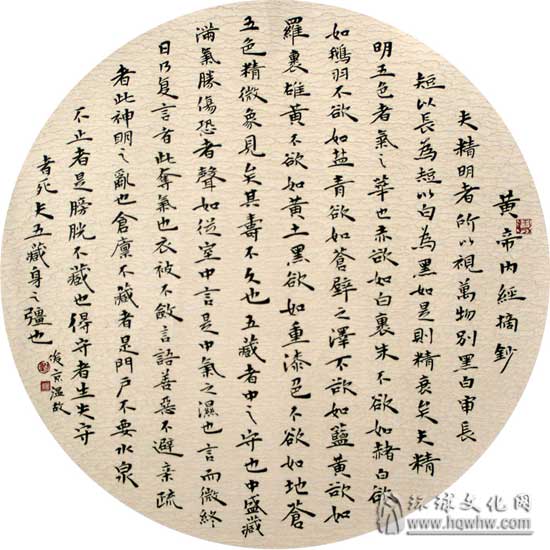 黄帝内經摘鈔
夫精明者所以視萬物別黑白審長
短以長為短以白為黑如是則精衰矣夫精
明五色者氣之華也赤欲如白裹朱不欲如赭白欲
如鵝羽不欲如盐青欲如蒼璧之澤不欲如藍黄欲如
羅裹雄黄不欲如黄土黑欲如重漆色不欲如地蒼
五色精微象見矣其壽不久也五藏者中之守也中盛藏
滿氣勝傷恐者聲如從室中言是中氣之濕也言而微終
日乃复言者此奪氣也衣被不斂言語善惡不避亲疏
者此神明之亂也倉廩不藏者是門戶不要水泉
不止者是膀胱不藏也得守者生失守
者死夫五藏身之彊也
京溫故
环球文化网
www.hqwhw.com